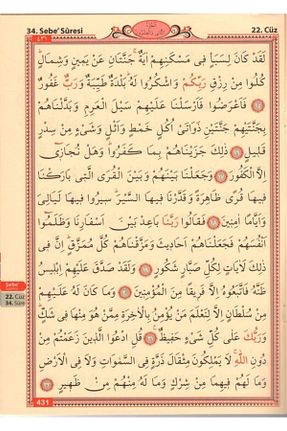 34. Sebe' Sûresi
22. Cüz
لَقَدْ كَانَ لِسَبَأٍ فِى مَسْكَنِهِمْ اٰيَةٌ جَنَّتَانِ عَنْ يَمِينٍ وَشِمَالٍ
كُلُوا مِنْ رِزْقِ رَبِّكُمْ وَاشْكُرُوا لَهُ بَلْدَةٌ طَيِّبَةٌ وَرَبٌّ غَفُورٌ
﴿١٥﴾ فَاَعْرَضُوا فَاَرْسَلْنَا عَلَيْهِمْ سَيْلَ الْعَرِمِ وَبَدَّلْنَاهُمْ
بِجَنَّتَيْهِمْ جَنَّتَيْنِ ذَوَاتَىْ اُكُلٍ خَمْطٍ وَاَثْلٍ وَشَىْءٍ مِنْ سِدْرٍ
قَلِيلٍ ﴿١٦﴾ ذٰلِكَ جَزَيْنَاهُمْ بِمَا كَفَرُوا وَهَلْ نُجَازِى
اِلَّا الْكَفُورَ ﴿١٧﴾ وَجَعَلْنَا بَيْنَهُمْ وَبَيْنَ الْقُرَى الَّتِى بَارَكْنَا
فِيهَا قُرًى ظَاهِرَةً وَقَدَّرْنَا فِيهَا السَّيْرَ سِيرُوا فِيهَا لَيَالِىَ
وَاَيَّامًا اٰمِنِينَ ﴿١٨﴾ فَقَالُوا رَبَّنَا بَاعِدْ بَيْنَ اَسْفَارِنَا وَظَلَمُوا
اَنْفُسَهُمْ فَجَعَلْنَاهُمْ اَحَادِيثَ وَمَزَّقْنَاهُمْ كُلَّ مُمَزَّقٍ اِنَّ فِى
ذٰلِكَ لَاٰيَاتٍ لِكُلِّ صَبَّارٍ شَكُورٍ ﴿١٩﴾ وَلَقَدْ صَدَّقَ عَلَيْهِمْ اِبْلِيسُ
ظَنَّهُ فَاتَّبَعُوهُ اِلَّا فَرِيقًا مِنَ الْمُؤْمِنِينَ ﴿٢٠﴾ وَمَا كَانَ لَهُ عَلَيْهِمْ
مِنْ سُلْطَانٍ اِلَّا لِنَعْلَمَ مَنْ يُؤْمِنُ بِالْاٰخِرَةِ مِمَّنْ هُوَ مِنْهَا فِى شَكٍّ
وَرَبُّكَ عَلٰى كُلِّ شَىْءٍ حَفِيظٌ ﴿٢١﴾ قُلِ ادْعُوا الَّذِينَ زَعَمْتُمْ مِنْ
دُونِ اللّٰهِ لَا يَمْلِكُونَ مِثْقَالَ ذَرَّةٍ فِى السَّمٰوَاتِ وَلَا فِى الْاَرْضِ
وَمَا لَهُمْ فِيهِمَا مِنْ شِرْكٍ وَمَا لَهُ مِنْهُمْ مِنْ ظَهِيرٍ ﴿٢٢﴾
Sebe'
22. Cüz
34. Sûre
431